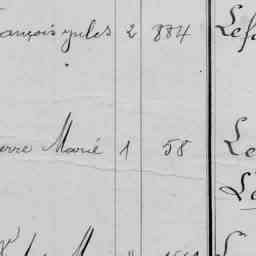 ançois jules 2 884 Lef
erre Marié 1 58 Le
Le